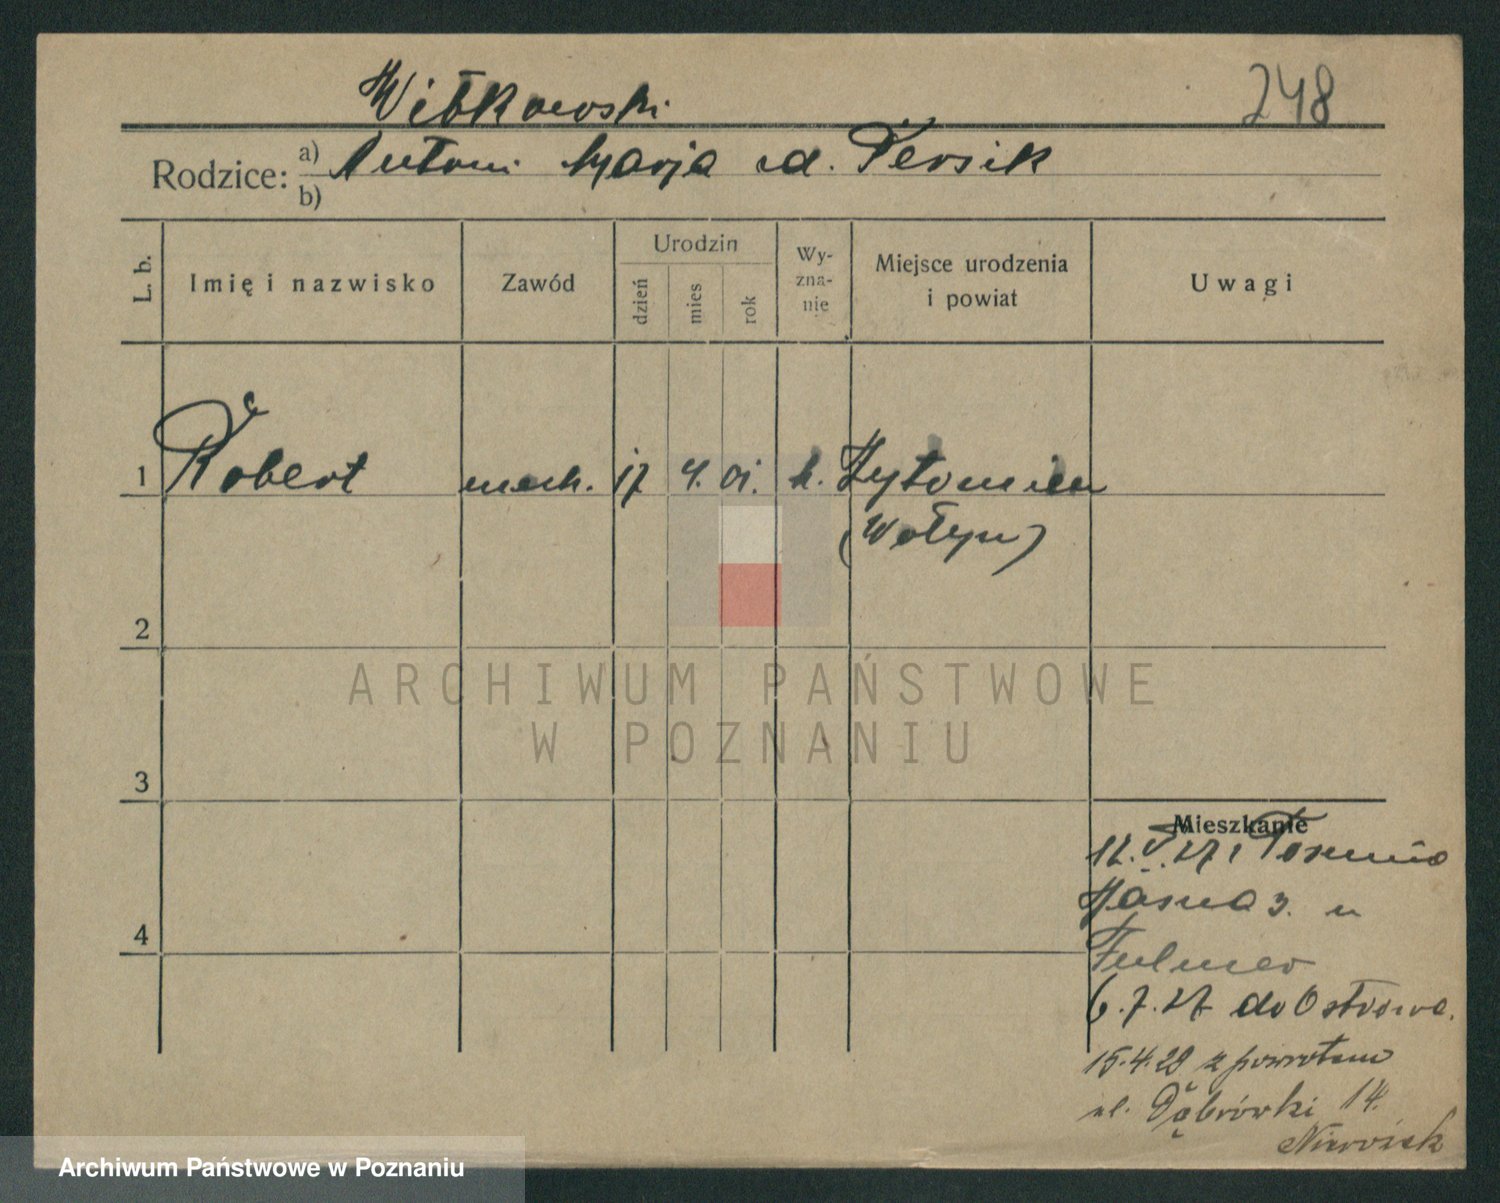 Witkowski
248
Rodzice: a) Antoni Marja zd. Persik
b)
L. b.
Imię i nazwisko
Zawód
Urodzin
dzień
mies
rok
Wy-
zna-
nie
Miejsce urodzenia
i powiat
Uwagi
1 Robert mech. 17 4. 01. k. Żytomierz
(Wołyń)
2
3
4
Mieszkanie
12.V.27 z Torunia
3. u
6.7.27 do Ostrowa.
15.4.28 z powrotem
ul. Dąbrówki 14.
ARCHIWUM PAŃSTWOWE
W POZNANIU
Archiwum Państwowe w Poznaniu